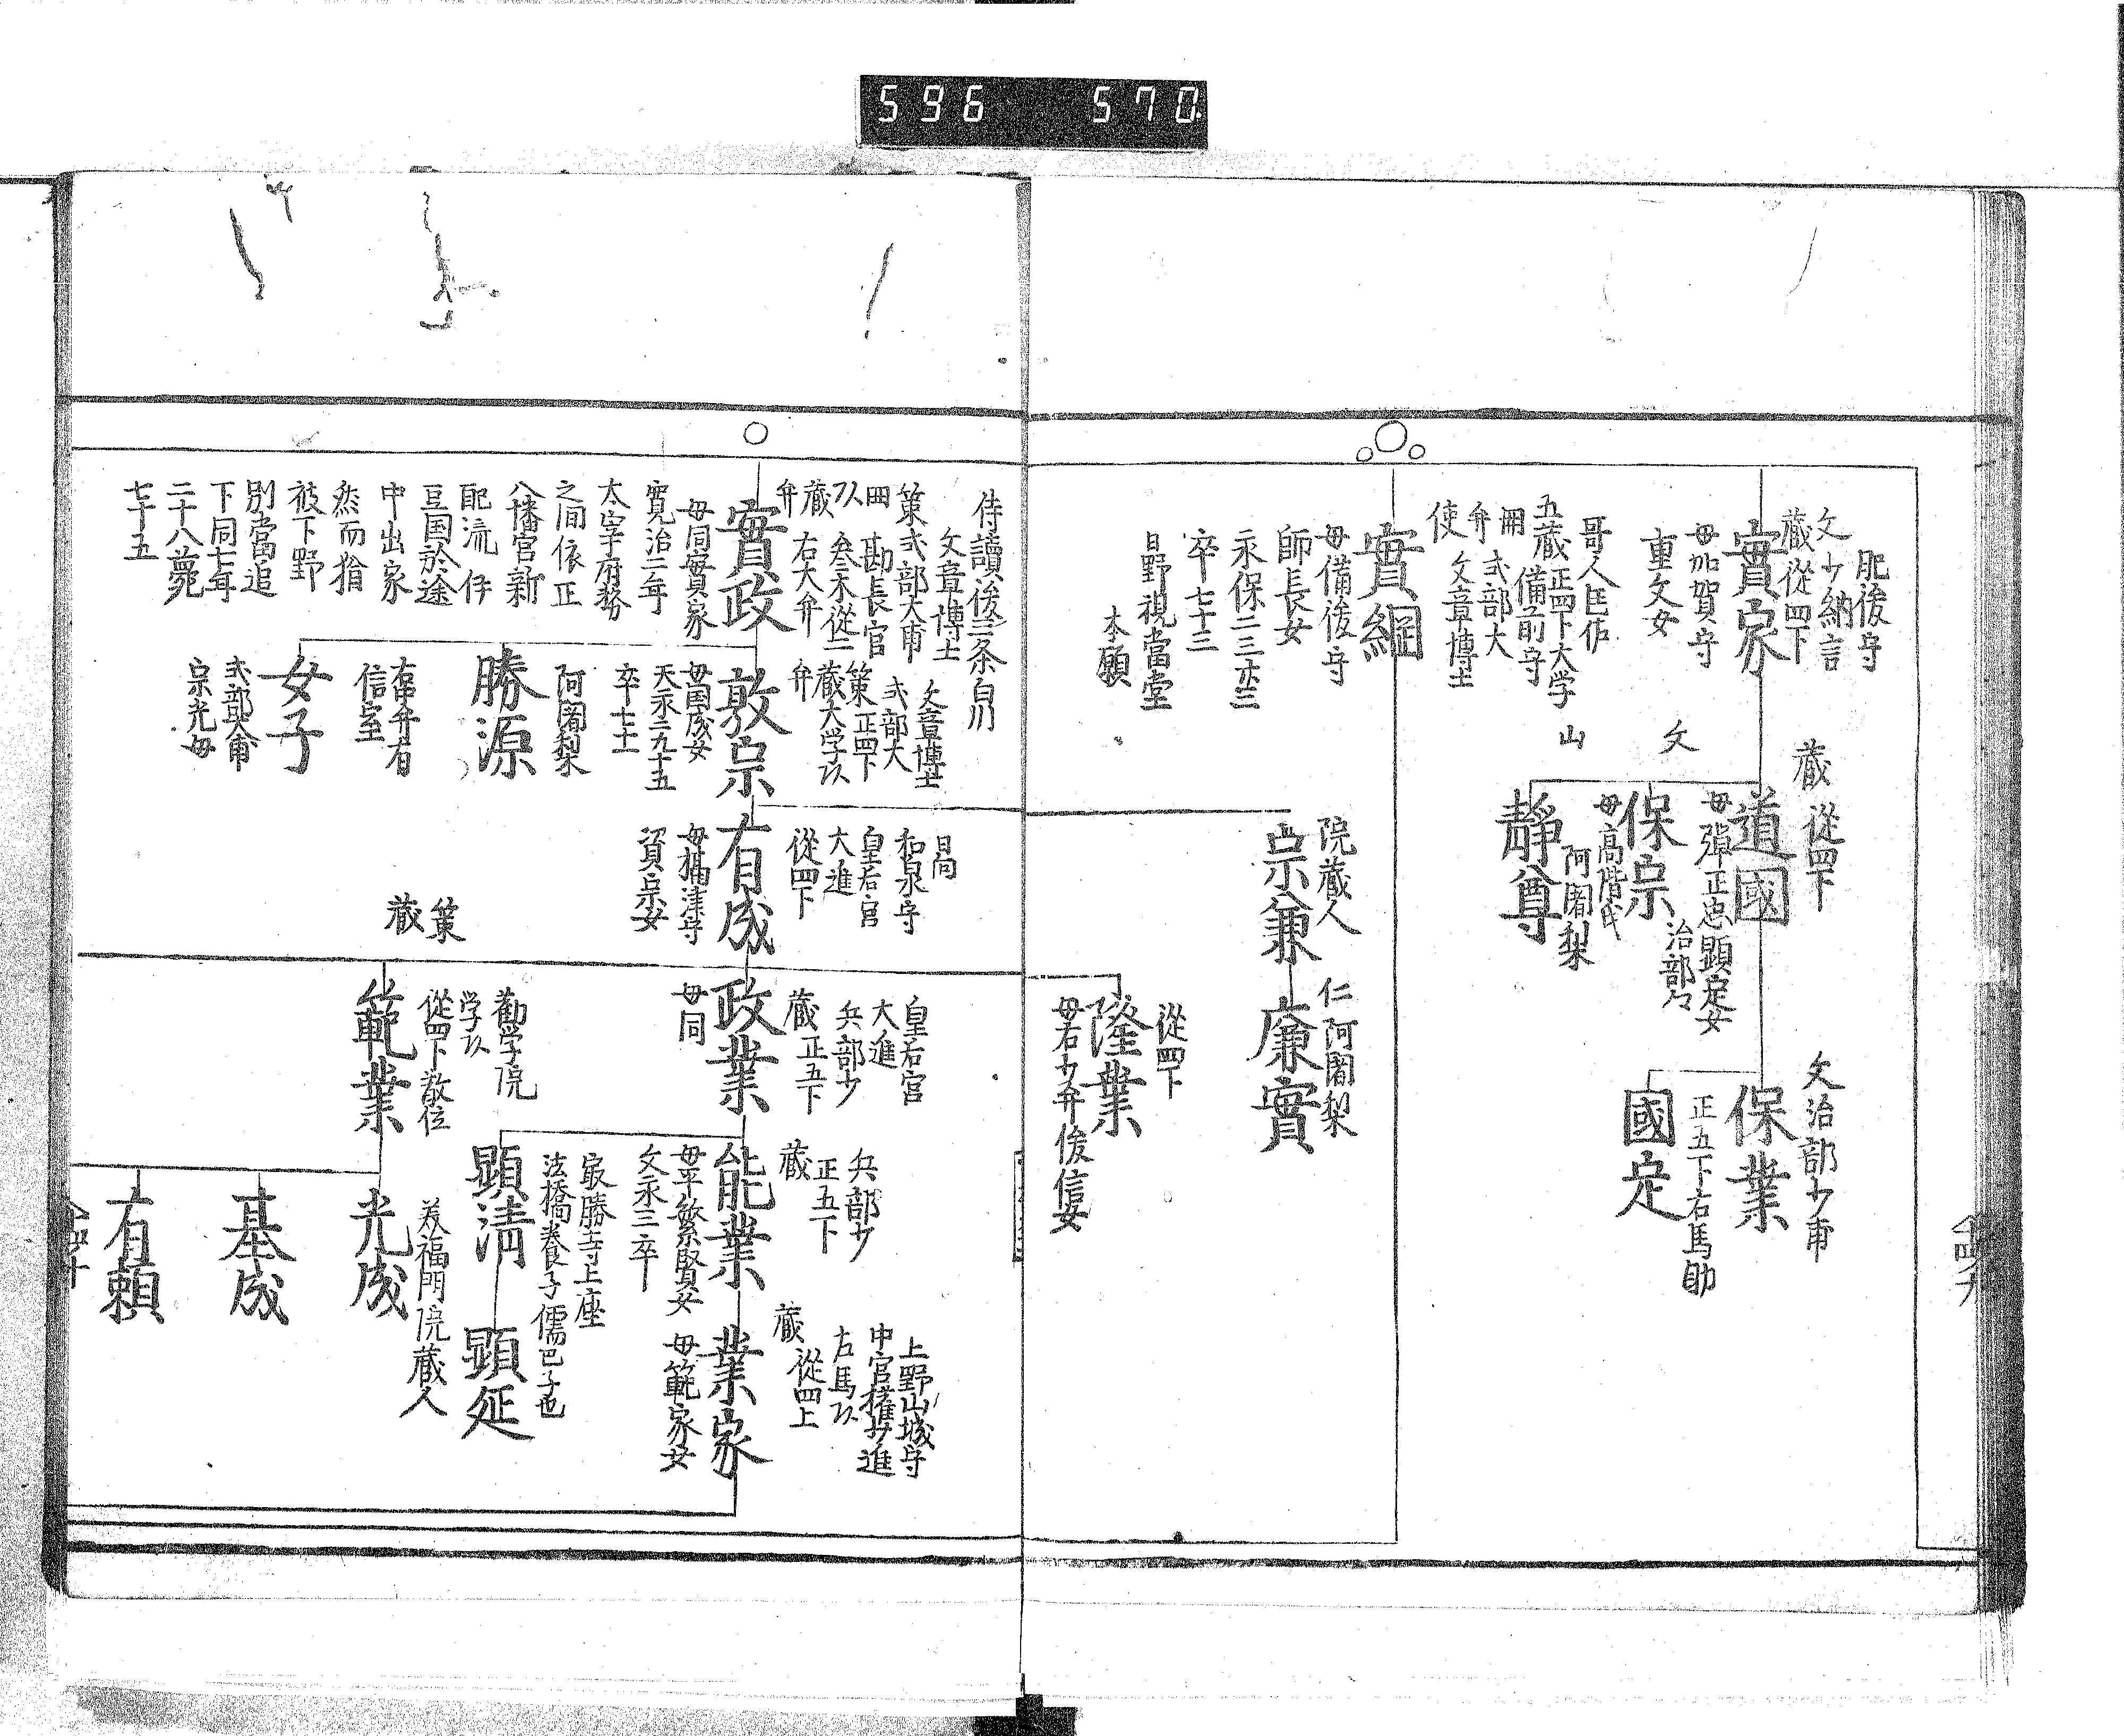 596 570
肥後守
文少納言
藏從四下
實家
母加賀守
重文女
藏從四下
道國
母弾正忠顕定女
文
治部々
保宗
母高階氏
山
阿闍梨
靜尊
文治部少甫
保業
正五下右馬助
國定
哥人匡佐
五藏正四下大学
備前守
弁式部大
使文章博士
實綱
母備後守
師長女
永保二三廿三
卒七十三
日野視當堂
本願
院藏人
宗兼
仁阿闍梨
廉實
從四下
隆業
母右少弁俊信女
侍讀後三条白川
文章博士
策式部大甫
勘長官
叁木從二
藏右大弁
弁
實政
母同實家
寛治二年
太宰府務
之間依正
八播宮新
配流伊
豆国於途
中出家
然而猶
被下野
別當追
下同七年
二十八薨
七十五
文章博士
式部大
策正四下
藏大学以
弁
敦宗
母国成女
天永二九十五
卒七十一
阿闍梨
勝源
右中弁有
信室
女子
式部大甫
宗光母
昌
和泉守
皇右宮
大進
從四下
有成
母摂津守
資宗女
皇右宮
大進
兵部少
藏正五下
政業
母同
策
藏
勸学院
学以
從四下散位
範業
兵部少
正五下
藏
能業
母平繁賢女
文永三卒
最勝寺上座
法橋養子儒巴子也
顕清
顕延
上野山城守
中宮権少進
左馬以
藏從四上
業家
母範家女
美福門院藏人
光成
基成
有頼